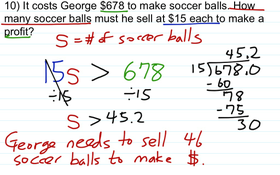 10) It costs George $678 to make soccer balls. How
many soccer balls must he sell at $15 each to make a
profit?
S = # of soccer balls
15S > 678
÷15 ÷15
S > 45.2
45.2
15)678.0
-60
78
-75
30
George needs to sell 46
soccer balls to make $.